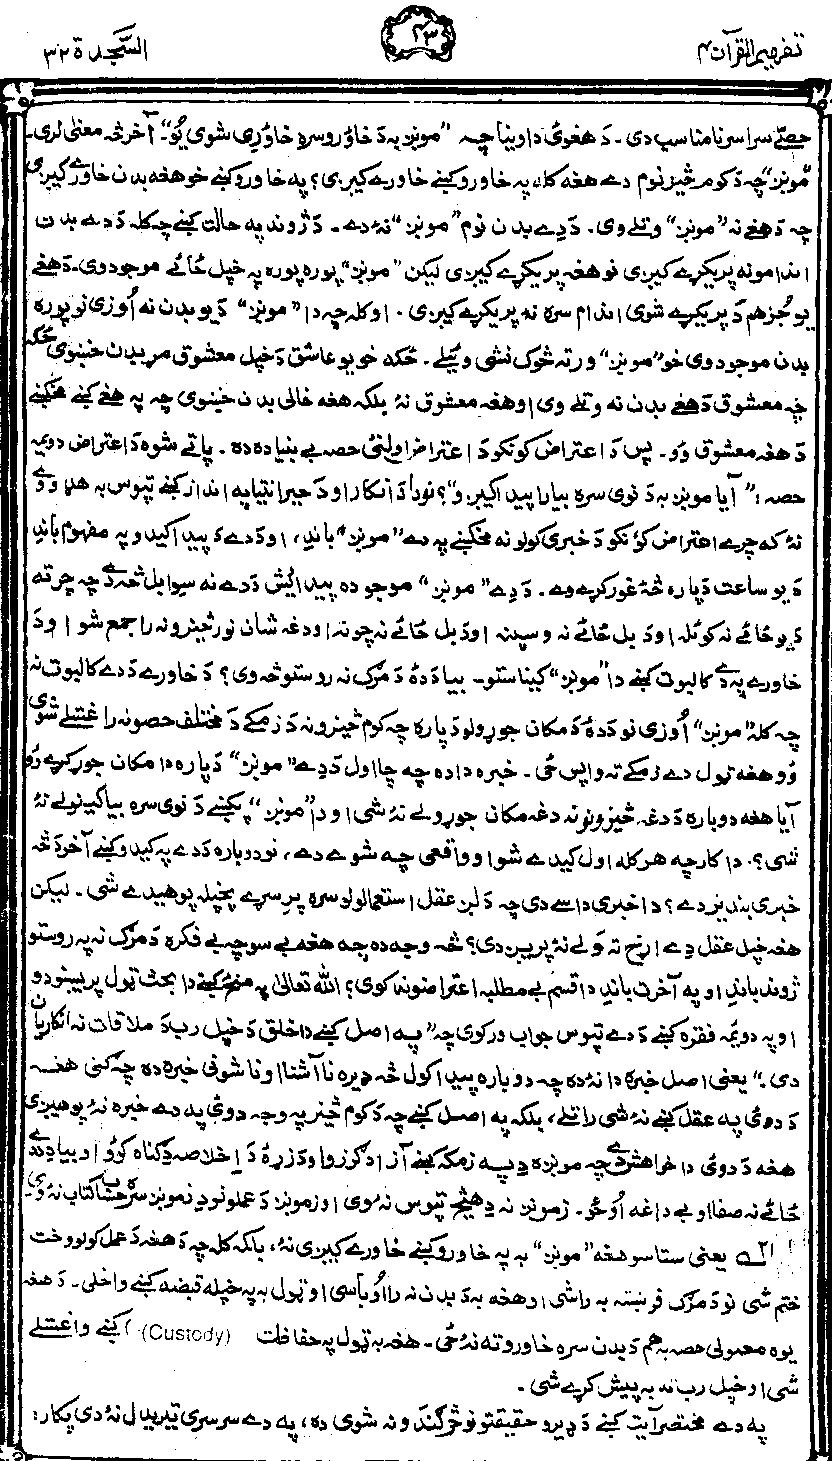 تفهيم القرآن ۴
۴۳
السَّجدة ۳۲
حصّے سراسر نامناسب دی ـ دَ هغوئ دا وینا چہ ”مونږ بہ دَ خاؤرو سره خاوَرې شوی یُو“ ـ آخر څہ معنٰی لری ـ
”مونږ“ چہ دَ کوم څیز نوم دے هغہ کلہ پہ خاورو کښے خاورے کیږی؟ پہ خاورو کښے خو هغہ بدن خاورے کیږی
چہ دَ هغے نہ ”مونږ“ وتلے وی. دَ دِے بدن نوم ”مونږ“ نۂ دے ـ دَ ژوند پہ حالت کښے چہ کلہ دَ دے بدن
اندامونہ پریکړے کیږی نو هغہ پریکړے کیږی لیکن ”مونږ“ پوره پوره پہ خپل ځائے موجود وی ـ دَ هغے
یو جُز هم دَ پریکړے شوی اندام سره نہ پریکړے کیږی. او کلہ چہ دا ”مونږ“ دَ یو بدن نہ اُوزی نو پوره
بدن موجود وی خو ”مونږ“ ورتہ څوک نشی وئیلے ـ ځکہ خو یو عاشق دَ خپل معشوق مړ بدن خښوی ځکہ
چہ معشوق دَ هغے بدن نہ وتلے وی او هغہ معشوق نۂ بلکہ هغہ خالی بدن خښوی چہ پہ هغے کښے مخکښے
دَ هغہ معشوق وَو ـ پس دَ اعتراض کونکو دَ اعتراض اولنئ حصہ بے بنیاده ده ـ پاتے شوه دَ اعتراض دویمہ
حصہ: ”آیا مونږ بہ دَ نوی سره بیا را پیدا کیږو“؟ نو دا دَ انکار او دَ حیرانتیا پہ انداز کښے تپوس بہ هډو وُو
نۂ کہ چرے اعتراض کوُنکو دَ خبرې کولو نہ مخکښے پہ دے ”مونږ“ باندِ، او دَ دے دَ پیدا کیدو پہ مفهوم باندِ
دَ یو ساعت دَپاره څۂ غور کړے وے ـ دَ دِے ”مونږ“ موجوده پیدائیش دَ دے نہ سِوا بل څۂ دے چہ چرتہ
دَ یو ځائے نہ کوئلہ او دَ بل ځائے نہ وسپنہ او دَ بل ځائے نہ چونہ او دغہ شان نور څیزونہ را جمع شو او دَ
خاورے پہ دے کالبوت کښے دا ”مونږ“ کیناستو ـ بیا دَ دۂ دَ مرګ نہ روستو څہ وی؟ دَ خاورے دَ دے کالبوت نہ
چہ کلہ ”مونږ“ اُوزی نو دَ دۂ دَ مکان جوړولو دَ پاره چہ کوم څیزونہ دَ زمکے دَ مختلف حصونہ را غښتلے شوی
وُو هغہ ټول دے زمکے تہ واپس ځی ـ خبره دا ده چہ چا اول دَ دِے ”مونږ“ دَ پاره دا مکان جوړ کړے وُو
آیا هغہ دوباره دَ دغہ څیزونو نہ دغہ مکان جوړولے نۂ شی او دا ”مونږ“ پکښے دَ نوی سره بیا کینولے نۂ
شی؟. دا کار چہ هر کلہ اول کیدے شو او واقعی چہ شوے دے، نو دوباره دَ دے پہ کیدو کښے آخر دَ څہ
خبرې بندیز دے؟ دا خبرې داسے دی چہ دَ لږ عقل استعمالولو سره پرې سړے پخپلہ پوهیدے شی ـ لیکن
هغہ خپل عقل دِے اړخ تہ وَلے نۂ پریږدی؟ څہ وجہ ده چہ هغہ بے سوچہ بے فکره دَ مرګ نہ پہ روستو
ژوند باندِ او پہ آخرت باندِ دا قسم بے مطلبہ اعتراضونہ کوی؟ الله تعالٰی پہ منځ کښے دا بحث ټول پریښودو
او پہ دویمہ فقره کښے دَ دے تپوس جواب ورکوی چہ ”پہ اصل کښے دا خلق دَ خپل رب دَ ملاقات نہ انکاریان
دی.“ یعنی اصل خبره دا نۂ ده چہ دوباره پیدا کول څہ ډیره نا آشنا او ناشونې خبره ده چہ ګنی هغہ
دَ دوئ پہ عقل کښے نۂ شی راتلے، بلکہ پہ اصل کښے چہ دَ کوم څیز پہ وجہ دوئ پہ دے خبره نۂ پوهیږی
هغہ دَ دوئ دا خواهش دے چہ مونږه دِ پہ زمکہ کښے آزاد ګرزو او دَ زړۂ دَ اِخلاصہ دِ ګناه کوُو او بیا دِ دے
ځائے نہ صفا او بے داغہ اُوځو ـ زمونږ نہ دِ هیڅ تپوس نہ وی او زمونږ دَ عملونو دِ زمونږ سره حساب کتاب نۂ وی ـ
۲۱ یعنی ستاسو هغہ ”مونږ“ بہ پہ خاورو کښے خاورے کیږی نۂ، بلکہ کلہ چہ دَ هغہ دَ عمل کولو وخت
ختم شی نو دَ مرګ فرښتہ بہ راشی او هغہ بہ دَ بدن نہ را اُوباسی او ټول بہ پہ خپلہ قبضہ کښے واخلی ـ دَ هغہ
یوه معمولی حصہ بہ هم دَ بدن سره خاورو تہ نۂ ځی ـ هغہ بہ ټول پہ حفاظت (Custody) کښے واغستلے
شی او خپل رب تہ بہ پیش کړے شی ـ
پہ دے مختصر آیت کښے دَ ډیرو حقیقتونو څرګندونہ شوی ده، پہ دے سرسری تیریدل نۂ دی پکار: